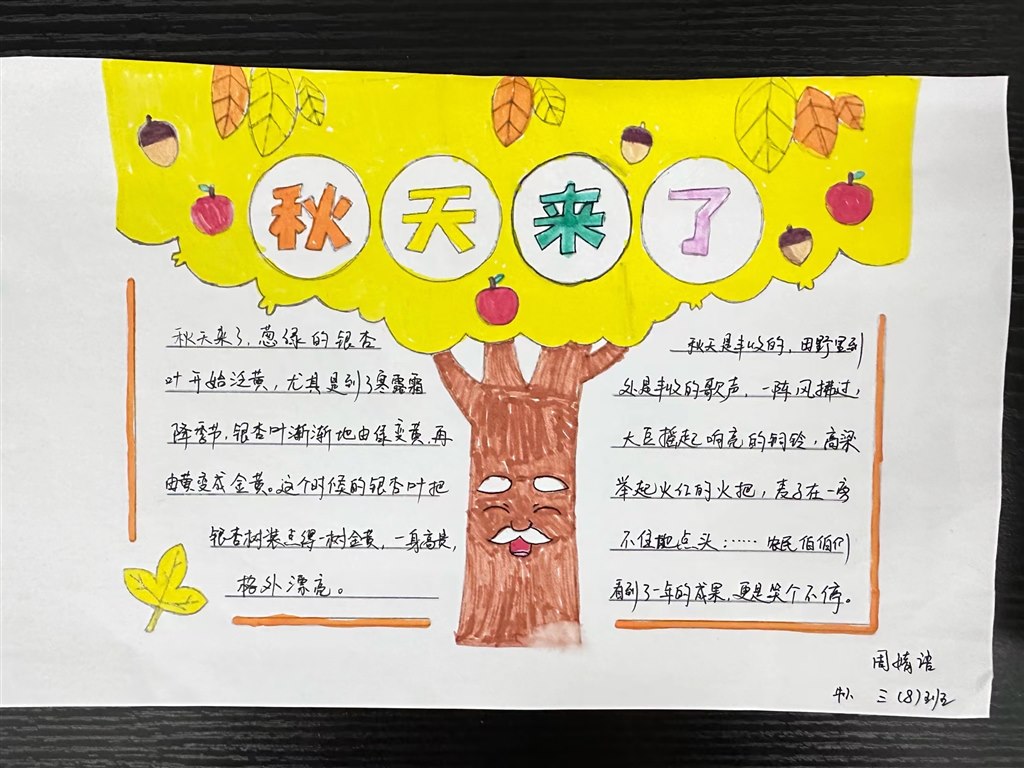 秋天来了
秋天来了,葱绿的银杏
叶开始泛黄,尤其是到了寒露霜
降季节,银杏叶渐渐地由绿变黄,再
由黄变成金黄。这个时候的银杏叶把
银杏树装点得一树金黄,一身高贵,
格外漂亮。
秋天是丰收的,田野里到
处是丰收的歌声,一阵风拂过,
大豆摇起响亮的铜铃,高粱
举起火红的火把,麦子在一旁
不住地点头:……农民伯伯们
看到了一年的成果,更是笑个不停。
周婧
三(8)班